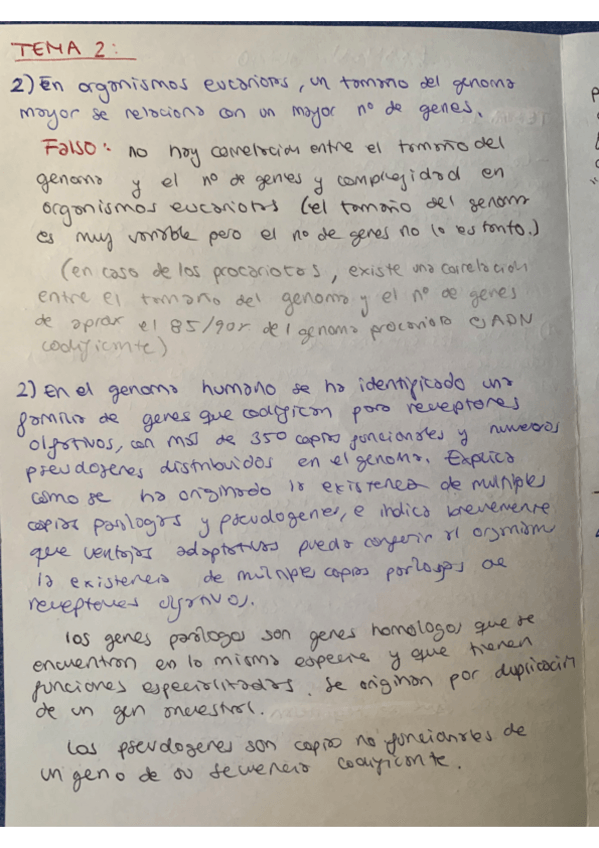 TEMA 2:
2) En organismos eucariotas, un tamaño del genoma
mayor se relaciona con un mayor nº de genes.
Falso: no hay correlación entre el tamaño del
genoma y el nº de genes y complejidad en
organismos eucariotas (el tamaño del genoma
es muy variable pero el nº de genes no lo es tanto.)
(en caso de los procariotas, existe una correlación
entre el tamaño del genoma y el nº de genes
de el 85/90% del genoma procariota es ADN
codificante)
2) En el genoma humano se ha identificado una
familia de genes que codifican para receptores
olfativos, con más de 350 copias funcionales y numerosos
pseudogenes distribuidos en el genoma. Explica
como se ha originado la existencia de multiples
copias parálogas y pseudogenes, e indica brevemente
que ventajas adaptativas puede conferir al organismo
la existencia de múltiples copias parálogas de
receptores olfativos.
Los genes parálogos son genes homólogos que se
encuentran en la misma especie y que tienen
funciones especializadas. Se originan por duplicación
de un gen ancestral.
Los pseudogenes son copias no funcionales de
un gen o de su secuencia codificante.